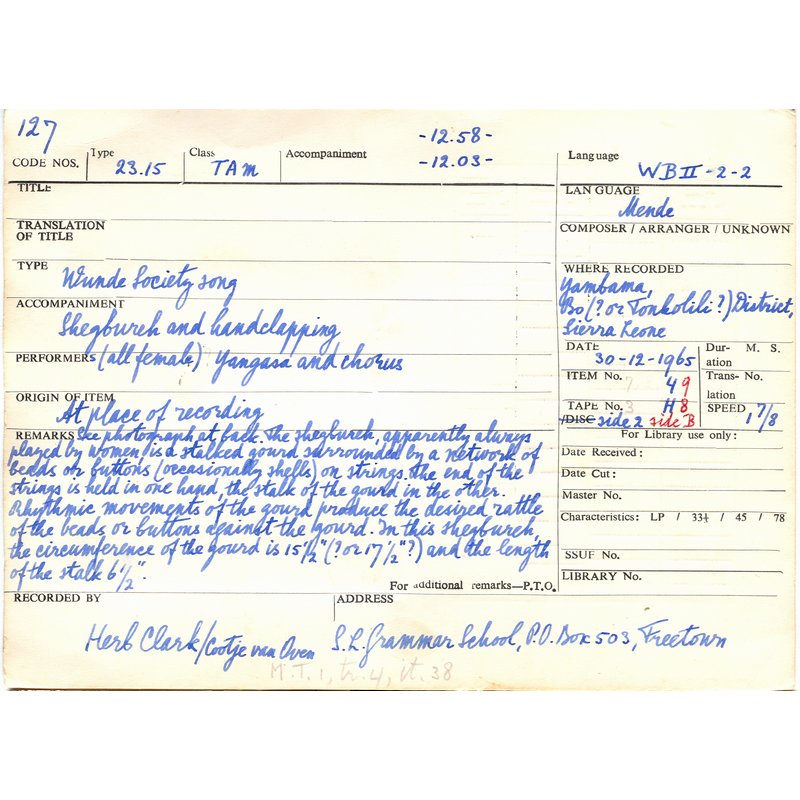 127
-12.58-
-12.03-
CODE NOS. Type 23.15 Class TAM Accompaniment
Language WB II-2-2
TITLE
LANGUAGE
Mende
TRANSLATION
OF TITLE
COMPOSER / ARRANGER / UNKNOWN
TYPE
Wunde Society song
WHERE RECORDED
Yambama,
Bo (? or Tonkolili?) District,
Sierra Leone
ACCOMPANIMENT
Shegbureh and handclapping
PERFORMERS (all female) Yangasa and chorus
DATE
30-12-1965
Dur- M. S.
ation
ITEM No. 4 9
Trans- No.
lation
TAPE No. H 8
/DISC side 2 side B
SPEED
1 7/8
ORIGIN OF ITEM
At place of recording
REMARKS See photograph at back. The shegbureh, apparently always
played by women, is a stalked gourd surrounded by a network of
beads or buttons (occasionally shells) on strings. The end of the
strings is held in one hand, the stalk of the gourd in the other.
Rhythmic movements of the gourd produce the desired rattle
of the beads or buttons against the gourd. In this shegbureh,
the circumference of the gourd is 15½" (? or 17½"?) and the length
of the stalk 6½".
For additional remarks—P.T.O.
For Library use only:
Date Received:
Date Cut:
Master No.
Characteristics: LP / 33⅓ / 45 / 78
SSUF No.
LIBRARY No.
RECORDED BY
Herb Clark/Cootje van Oven
ADDRESS
S.L. Grammar School, P.O. Box 503, Freetown
M.T. 1, tr. 4, it. 38